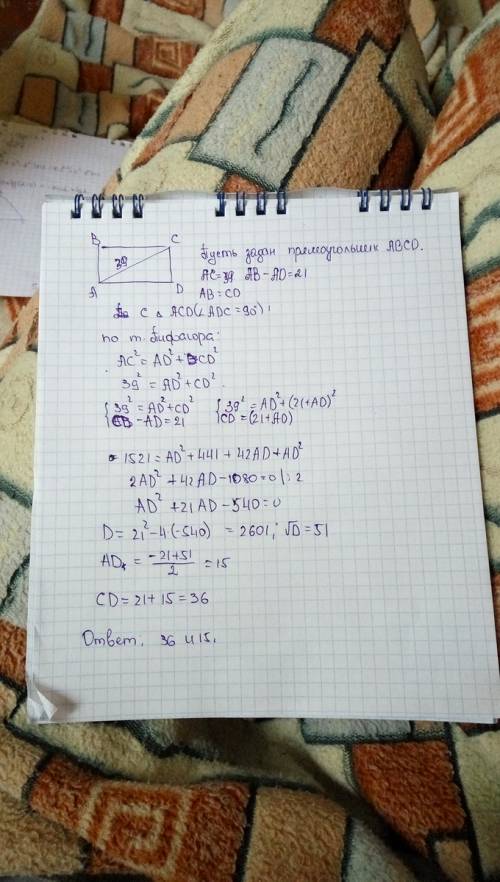 B C
39
A D
Пусть задан прямоугольник ABCD.
AC=39 AB-AD=21
AB=CD
С △ ACD(∠ADC=90°)
по т. Пифагора:
AC²=AD²+CD²
39²=AD²+CD²
{39²=AD²+CD² {39²=AD²+(21+AD)²
CD-AD=21 CD=(21+AD)
1521=AD²+441+42AD+AD²
2AD²+42AD-1080=0|:2
AD²+21AD-540=0
D=21²-4(-540)=2601; √D=51
AD=(-21+51)/2=15
CD=21+15=36
Ответ. 36 и 15.